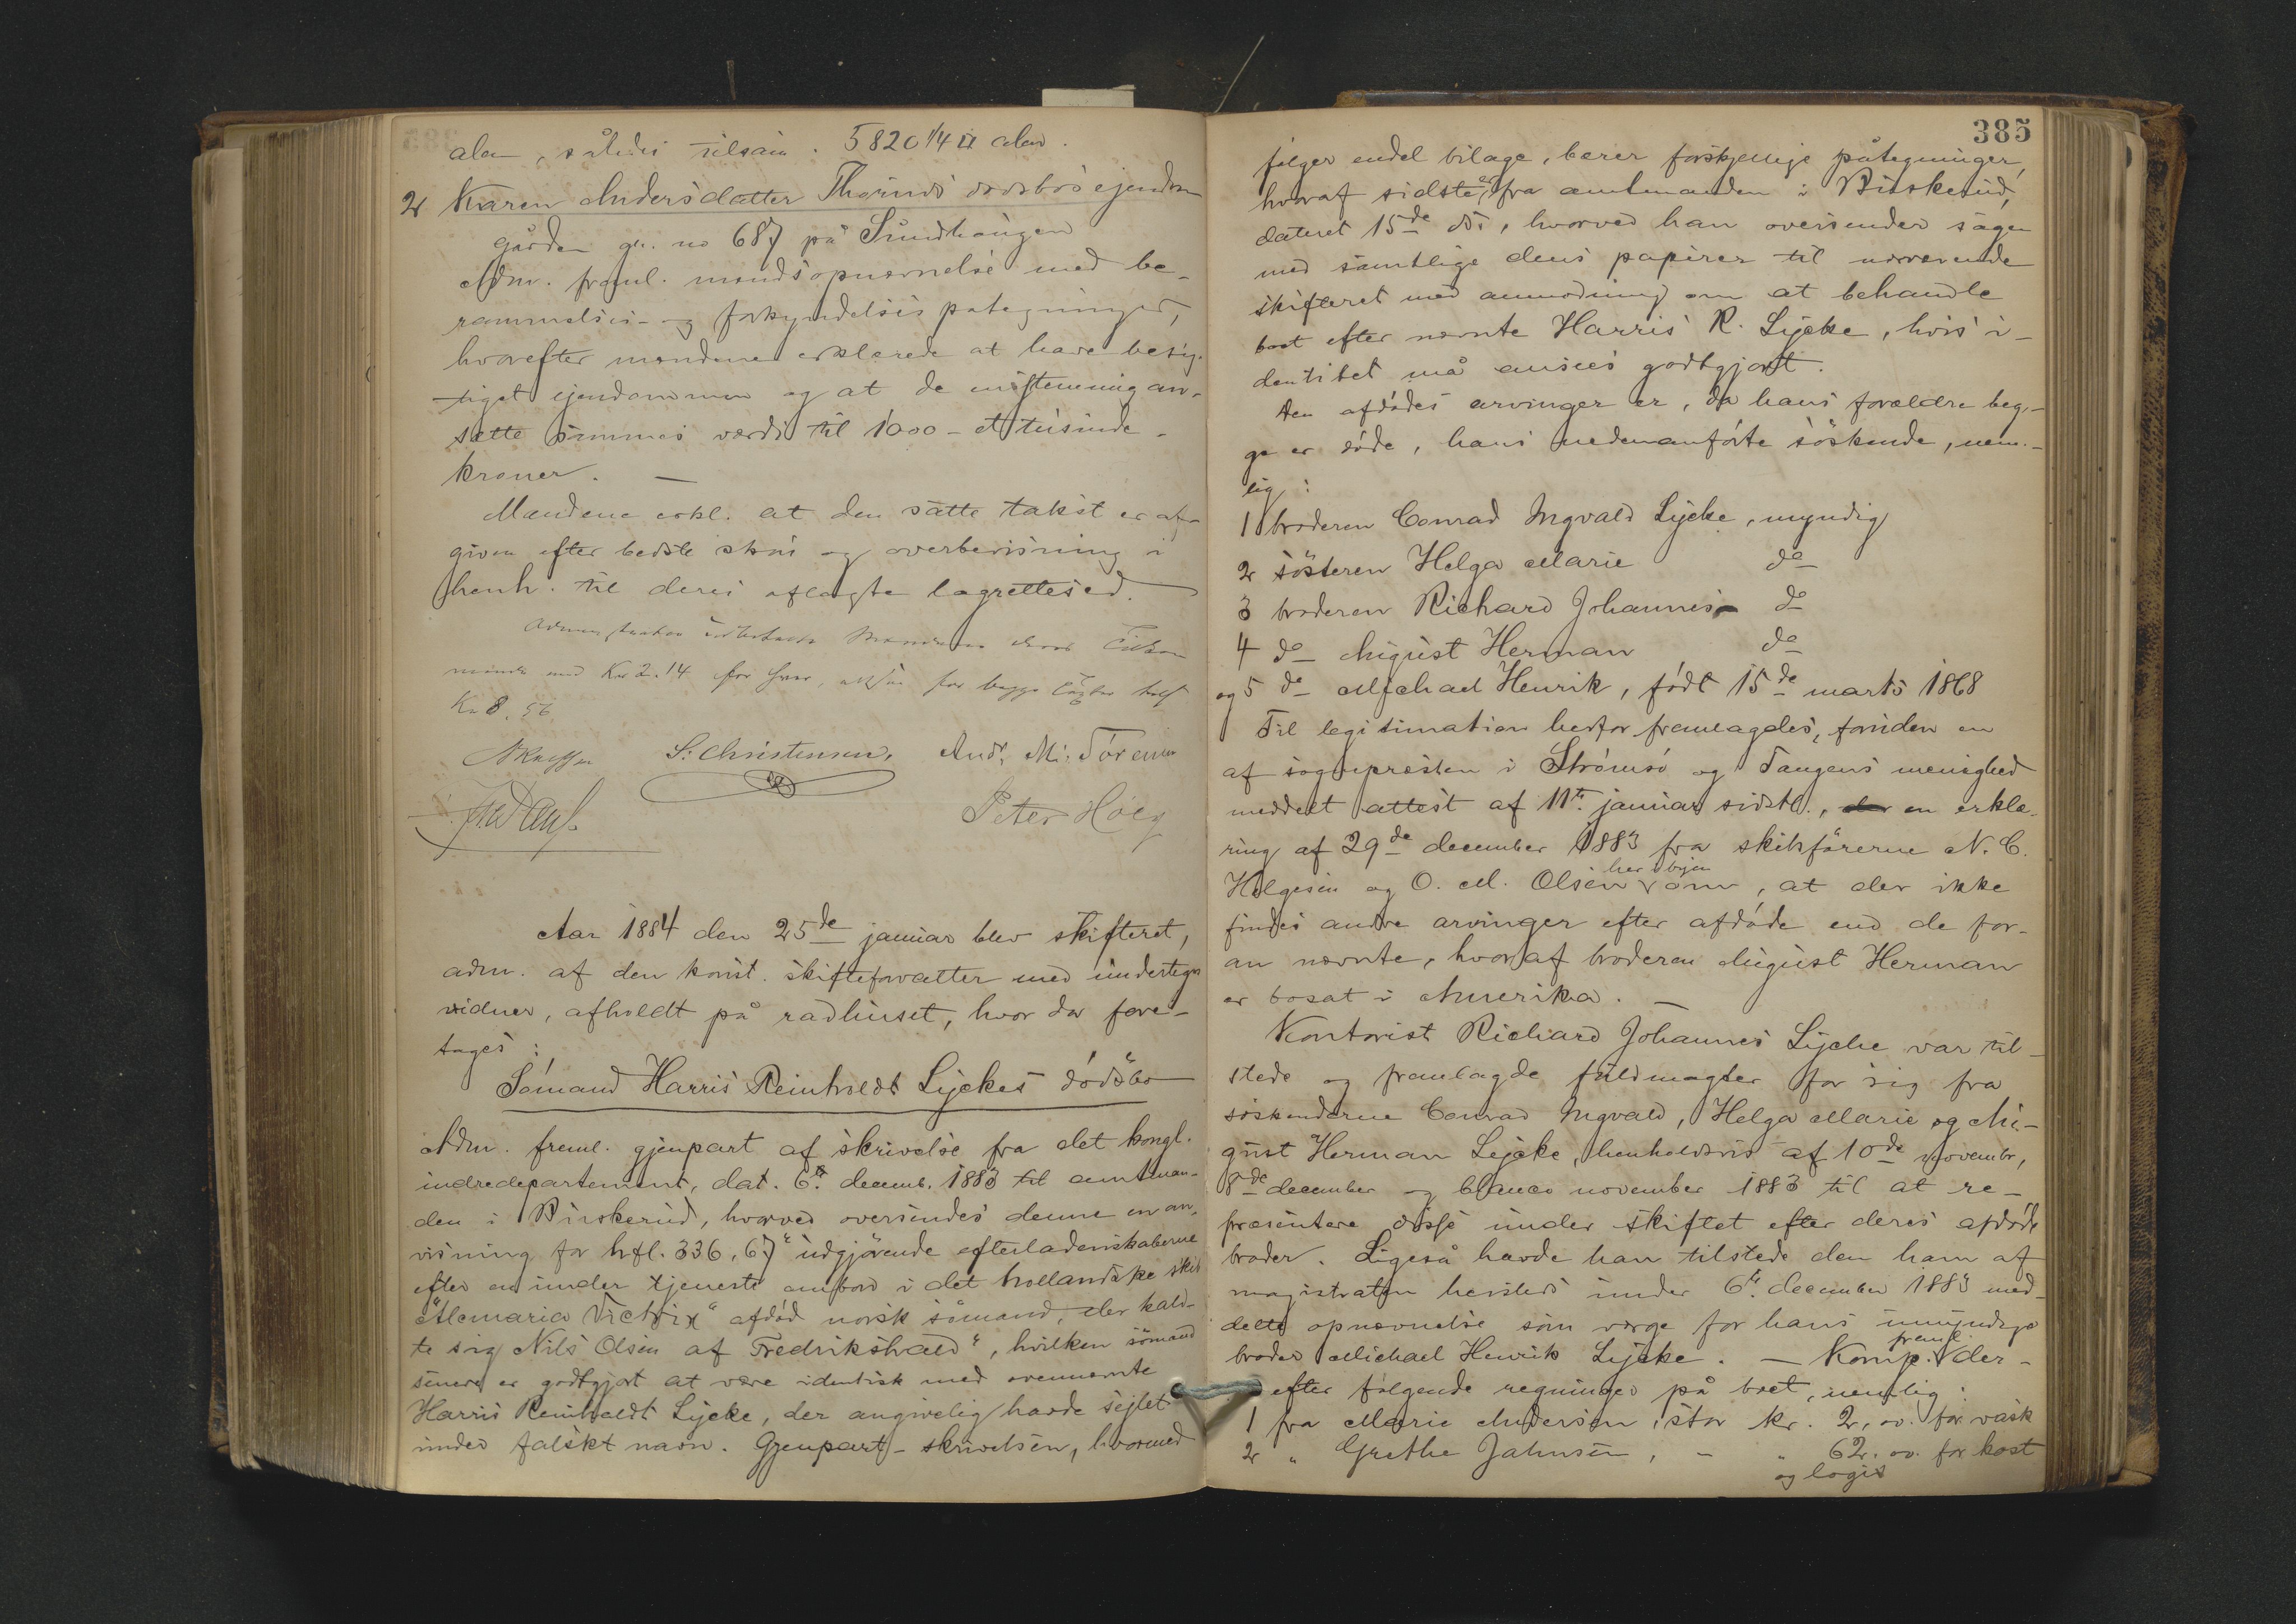 alen, således tilsam. 5820 1/4 □ alen.
2 Karen Andersdatter Thorines dødsbos ejendom
gården gr. no 687 på Sundhaugen
Adm. freml. mændsopnævnelse med be-
rammelses- og forkyndelses påtegninger,
hvorefter mændene erklærede at have besig-
tiget ejendommen og at de enstemmig an-
sætte sammes værdi til 1000 - et tusinde -
kroner. —
Mændene erkl. at den satte takst er af-
given efter bedste skøn og overbevisning i
henh. til deres aflagte lagrettesed. —
Administrator udbetalte Mændene deres Tilkom
mende med Kr 2.14 for hver, altså for begge Tagter
Kr 8.56
S. Christensen, Andr. M. Torenin
Peter Höeg
Aar 1884 den 25de januar blev skifteret,
adm. af den konst. skifteforvalter med undertegn
vidner, afholdt på rådhuset, hvor da fore-
tages:
Sømand Harris Reinholdt Lyckes dødsbo
Adm. freml. gjenpart af skrivelse fra det kongl.
indredepartement, dat. 6te decemb. 1883 til amtman-
den i Buskerud, hvorved oversendes denne en an-
visning for hfl. 336,67" udgjørende efterladenskaberne
efter en under tjeneste ombord i det hollandske skib
"Alemaria Victrix" afdød norsk sømand, der kald-
te sig Nils Olsen af Fredrikshald", hvilken sømand
senere er godtgjort at være identisk med ovennævnte
Harris Reinholdt Lycke, der angivelig havde sejlet
under falskt navn. Gjenpart-skrivelsen, hvormed
385
følger endel bilage, bærer forskjellige påtegninger,
hvoraf sidste er fra amtmanden i Buskerud,
dateret 15de ds., hvorved han oversender sagen
med samtlige dens papirer til nærværende
skifteret med anmodning om at behandle
boet efter nævnte Harris R. Lycke, hvis i-
dentitet må ansees godtgjort.
Den afdødes arvinger er, da hans forældre beg-
ge er døde, hans nedenanførte søskende, nem-
lig:
1 broderen Conrad Ingvald Lycke, myndig
2 søsteren Helga Marie do
3 broderen Richard Johannes - do
4 do August Herman do
og 5 do Michael Henrik, født 15de marts 1868
Til legitimation herfor fremlagdes, foruden en
af sognepresten i Strømsø og Tangens menighed
meddelt attest af 11te januar sidstl., en erklæ-
ring af 29de december 1883 fra skibsførerne N. C.
Helgesen og O. M. Olsen her i byen om, at der ikke
findes andre arvinger efter afdøde end de for-
an nævnte, hvoraf broderen August Herman
er bosat i Amerika. —
Kontorist Richard Johannes Lycke var til-
stede og fremlagde fuldmagter for sig fra
søskenderne Conrad Ingvald, Helga Marie og Au-
gust Herman Lycke, henholdsvis af 10de novembr,
8de december og blanco november 1883 til at re-
præsentere disse under skiftet efter deres afdøde
broder. Ligeså havde han tilstede den ham af
magistraten hersteds under 6te december 1883 med-
delte opnævnelse som værge for hans umyndige
broder Michael Henrik Lycke. — Komp. freml. der-
efter følgende regninger på boet, nemlig:
1 fra Marie Andersen, stor kr. 2,00 for vask
2 " Grethe Jahnsen, - " 62.00 for kost
og logis